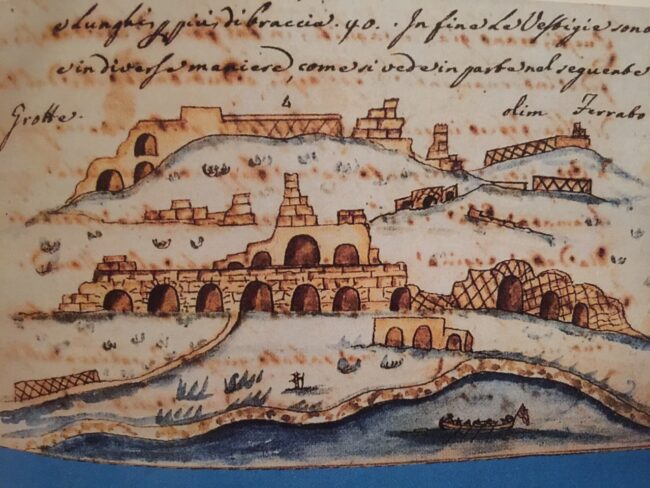 e Lunghi p più di braccia. 40. In fine Le Vestigie sono
e in diverse maniere, come si vede in parte nel seguente
Grotte. olim Ferrabo